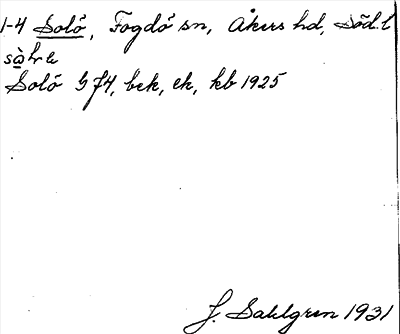 1-4 Solö, Fogdö sn, Åkers hd, Södl
Solö G74, bek, ek, kb 1925
J. Sahlgren 1931